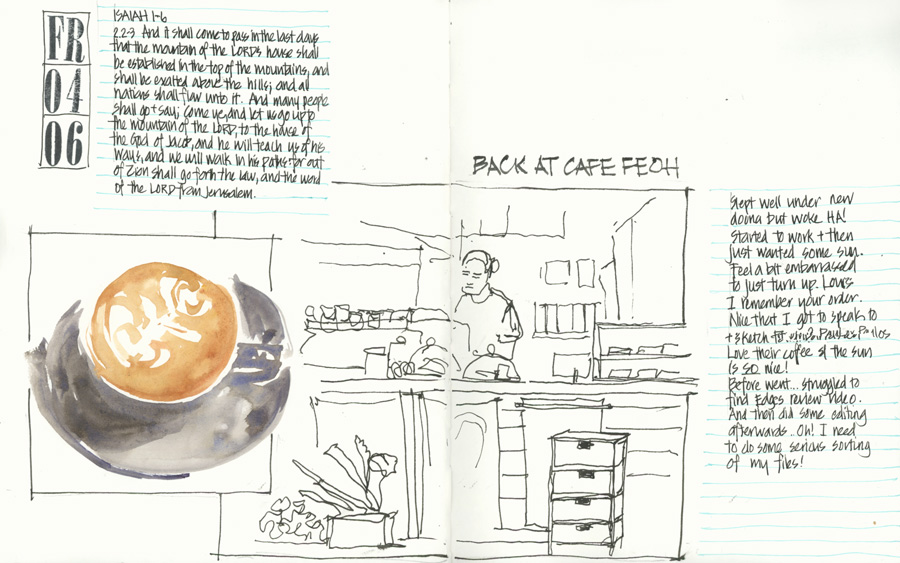 FR
04
06
ISAIAH 1-6
2.2-3 And it shall come to pass in the last days
that the mountain of the LORD'S house shall
be established in the top of the mountains, and
shall be exalted above the hills; and all
nations shall flow unto it. And many people
shall go + say; Come ye, and let us go up to
the mountain of the LORD, to the house of
the God of Jacob, and he will teach us of his
ways, and we will walk in his paths for out
of Zion shall go forth the law, and the word
of the LORD from Jerusalem.
BACK AT CAFE FEOH
Slept well under new
doona but woke HA!
Started to work + then
just wanted some sun.
Feel a bit embarrassed
to just turn up. Louis
I remember your order.
Nice that I got to speak to
+ sketch
Love their coffee + the sun
is SO nice!
Before went... struggled to
find Edges review video.
And then did some editing
afterwards.. Oh! I need
to do some serious sorting
of my files!